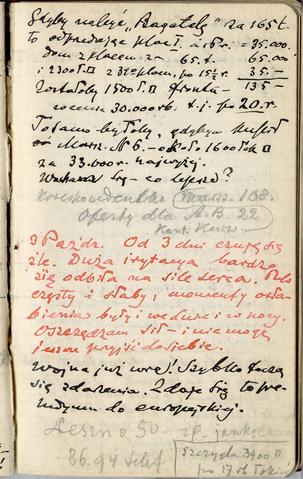 Gdyby nabyć „Bagatelę" za 165 t.
to odprzedając plac á 18 r. = 35.000.
dom z placem za 65. t. 65.000
i 2300 ł□ z placem, po 15½ r. 35.—
Zostałoby 1500 ł□ frontu — 135 —
30.000 rb. t. j. po 20. r.
To samo byłoby, gdybym kupił
Marsz. № 6. — około 1600 łok □
za 33.000 r. najwyżej.
się — co lepsze?
Korespondentka Marsz. 108.
Oferty dla A. B. 22
Kant.
3 Paźdz. Od 3 dni czuję się
źle. Duża irytacja bardzo
się odbiła na sile serca. Puls
częsty i słaby, momenty osła-
bienia były i we dnie i w nocy.
Oszczędzam sił — i nie mogę
jeszcze przyjść do siebie.
Wojna już wre! Szybko toczą
się zdarzenia. Zdaje się to pre-
ludyum do europejskiej.
Leszno 50.
86.94 telef.
Szczygla 3400 □
po 17 rb łokieć